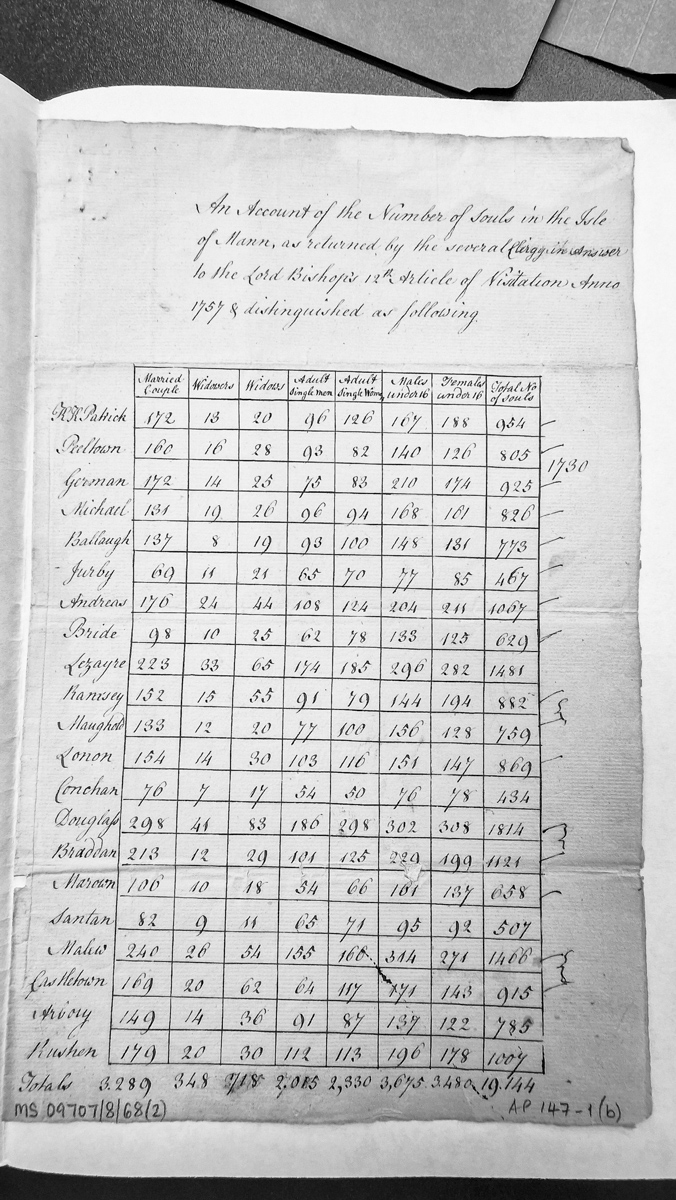 An Account of the Number of Souls in the Isle
of Mann, as returned by the several Clergy in Answer
to the Lord Bishop's 12th Article of Visitation Anno
1757 & distinguished as following.
Married Couple Widowers Widows Adult Single men Adult Single Women Males under 16 Females under 16 Total No of souls
Kk Patrick 172 13 20 96 126 167 188 954
Peeltown 160 16 28 93 82 140 126 805
1730
German 172 14 25 75 83 210 174 925
Michael 131 19 26 96 94 168 161 826
Ballaugh 137 8 19 93 100 148 131 773
Jurby 69 11 21 65 70 77 85 467
Andreas 176 24 44 108 124 204 211 1067
Bride 98 10 25 62 78 133 125 629
Lezayre 223 33 65 174 185 296 282 1481
Ramsey 152 15 55 91 79 144 194 882
Maughold 133 12 20 77 100 156 128 759
Lonon 154 14 30 103 116 151 147 869
Conchan 76 7 17 54 50 76 78 434
Douglass 298 41 83 186 298 302 308 1814
Braddan 213 12 29 101 125 229 199 1121
Marown 106 10 18 54 66 161 137 658
Santan 82 9 11 65 71 95 92 507
Malew 240 26 54 155 166 314 271 1466
Castletown 169 20 62 64 117 171 143 915
Arbory 149 14 36 91 87 137 122 785
Rushen 179 20 30 112 113 196 178 1007
Totals 3.289 348 718 2,015 2,330 3,675 3480 19.144
MS 09707/8/68(2) AP 147-1(b)